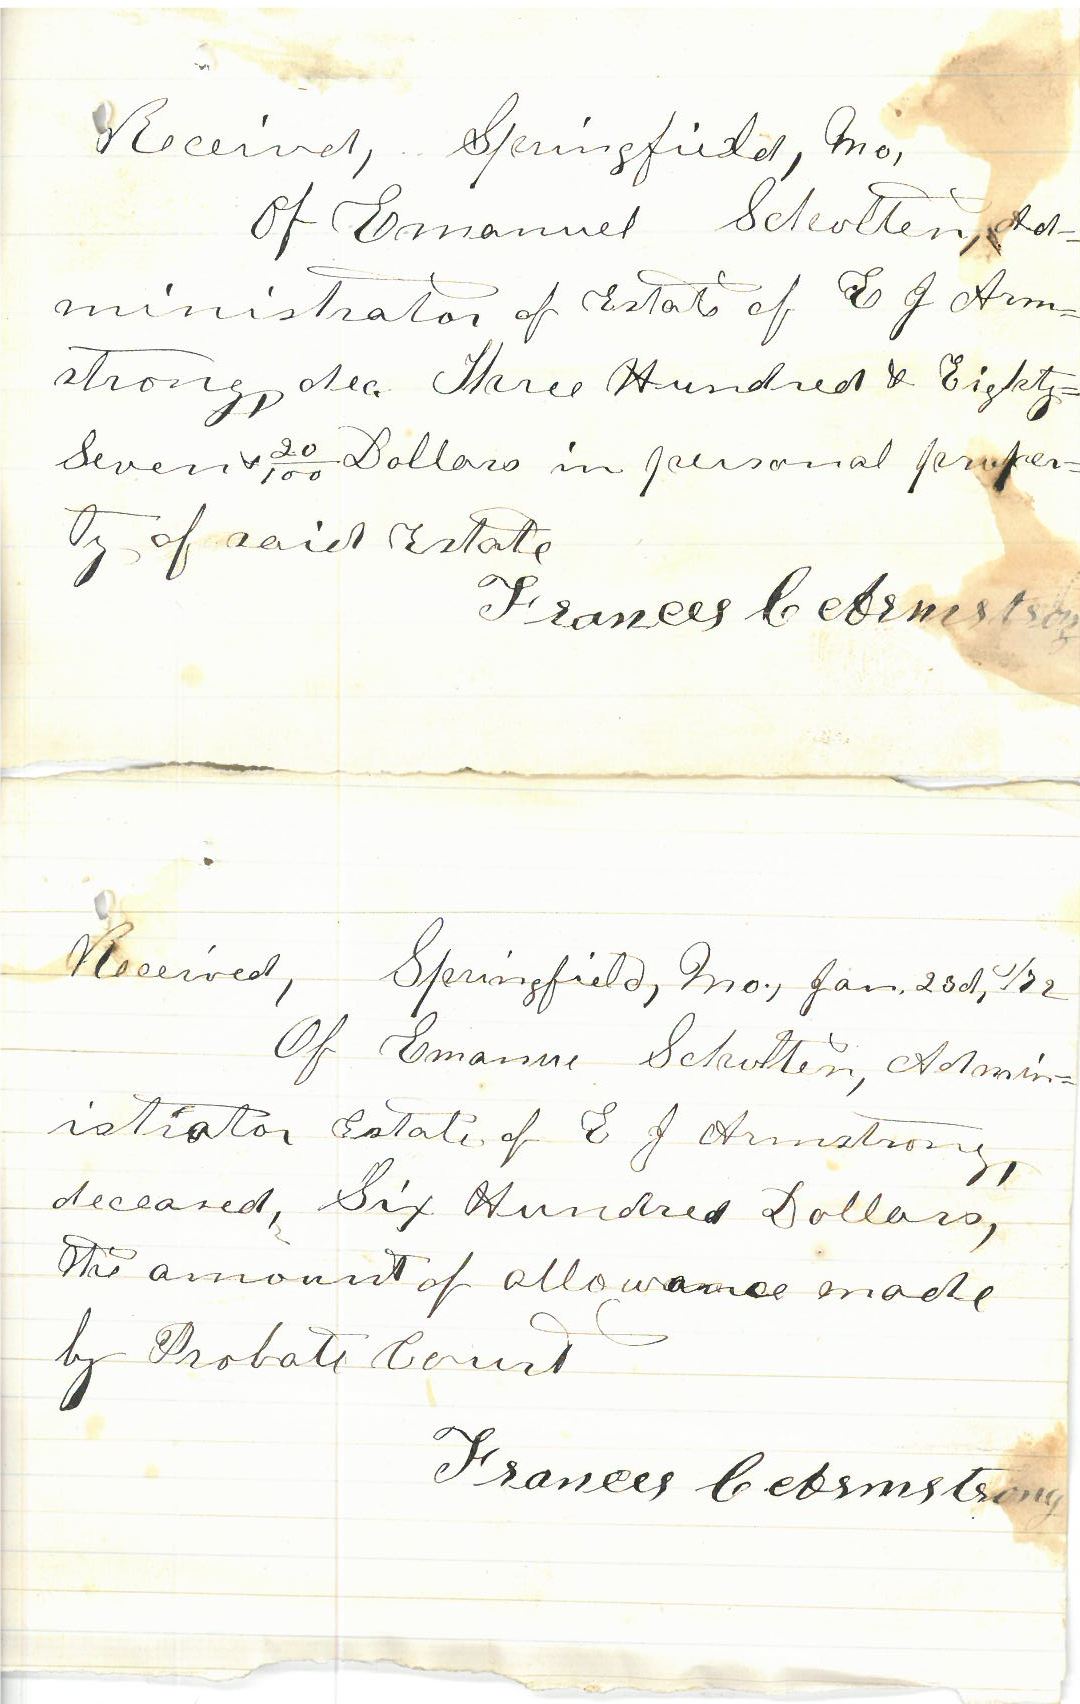 Received, Springfield, Mo,
Of Emanuel Scholten, Ad=
ministrator of Estate of E J Arm=
strong, dec. Three Hundred & Eighty=
Seven & 20/100 Dollars in personal proper=
ty of said Estate
Frances C Armstrong
Received, Springfield, Mo., Jan. 23d, /72
Of Emanue Scholten, Admin=
istrator Estate of E J Armstrong,
deceased, Six Hundred Dollars,
the amount of allowance made
by Probate Court
Frances C Armstrong